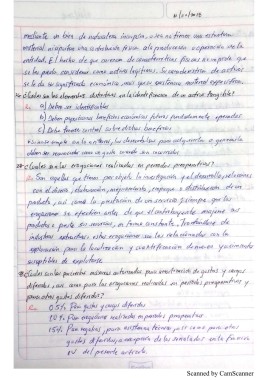 mediante un bien de naturaleza incorpórea, o sea no tienen una estructura
material ni aportan una contribución física a la producción u operación de la
entidad. El hecho de que carezcan de características físicas no impide que
se les pueda considerar como activos legítimos. Su característica de activos
se la da su significado económico, más que su existencia material específica.
¿Cuáles son los elementos distintivos en la identificación de un activo intangible?
a) Deben ser identificables
b) Deben proporcionar beneficios económicos futuros fundadamente esperados
c) Debe tenerse control sobre dichos beneficios
deben ser reconocidos como un gasto cuando son incurridos
¿Cuáles son las erogaciones realizadas en periodos preoperativos?
R= Son aquellas que tienen por objeto la investigación y el desarrollo, relacionados
con el diseño, elaboración, mejoramiento, empaque o distribución de un
producto, así como la prestación de un servicio, siempre que las
erogaciones se efectúen antes de que el contribuyente enajene sus
productos o preste sus servicios, en forma constante. Tratándose de
industrias extractivas, estas erogaciones son las relacionadas con la
exploración para la localización y cuantificación de nuevos yacimientos
susceptibles de explotarse.
¿Cuáles son los porcientos máximos autorizados para amortización de gastos y cargos
diferidos, así como para las erogaciones realizadas en periodos preoperativos y
para otros gastos diferidos?
R= 05% Para gastos y cargos diferidos
10% Para erogaciones realizadas en periodos preoperativos.
15% Para regalías, para asistencia técnica, así como para otros
gastos diferidos, a excepción de los señalados en la fracción
IV del presente artículo
Scanned by CamScanner